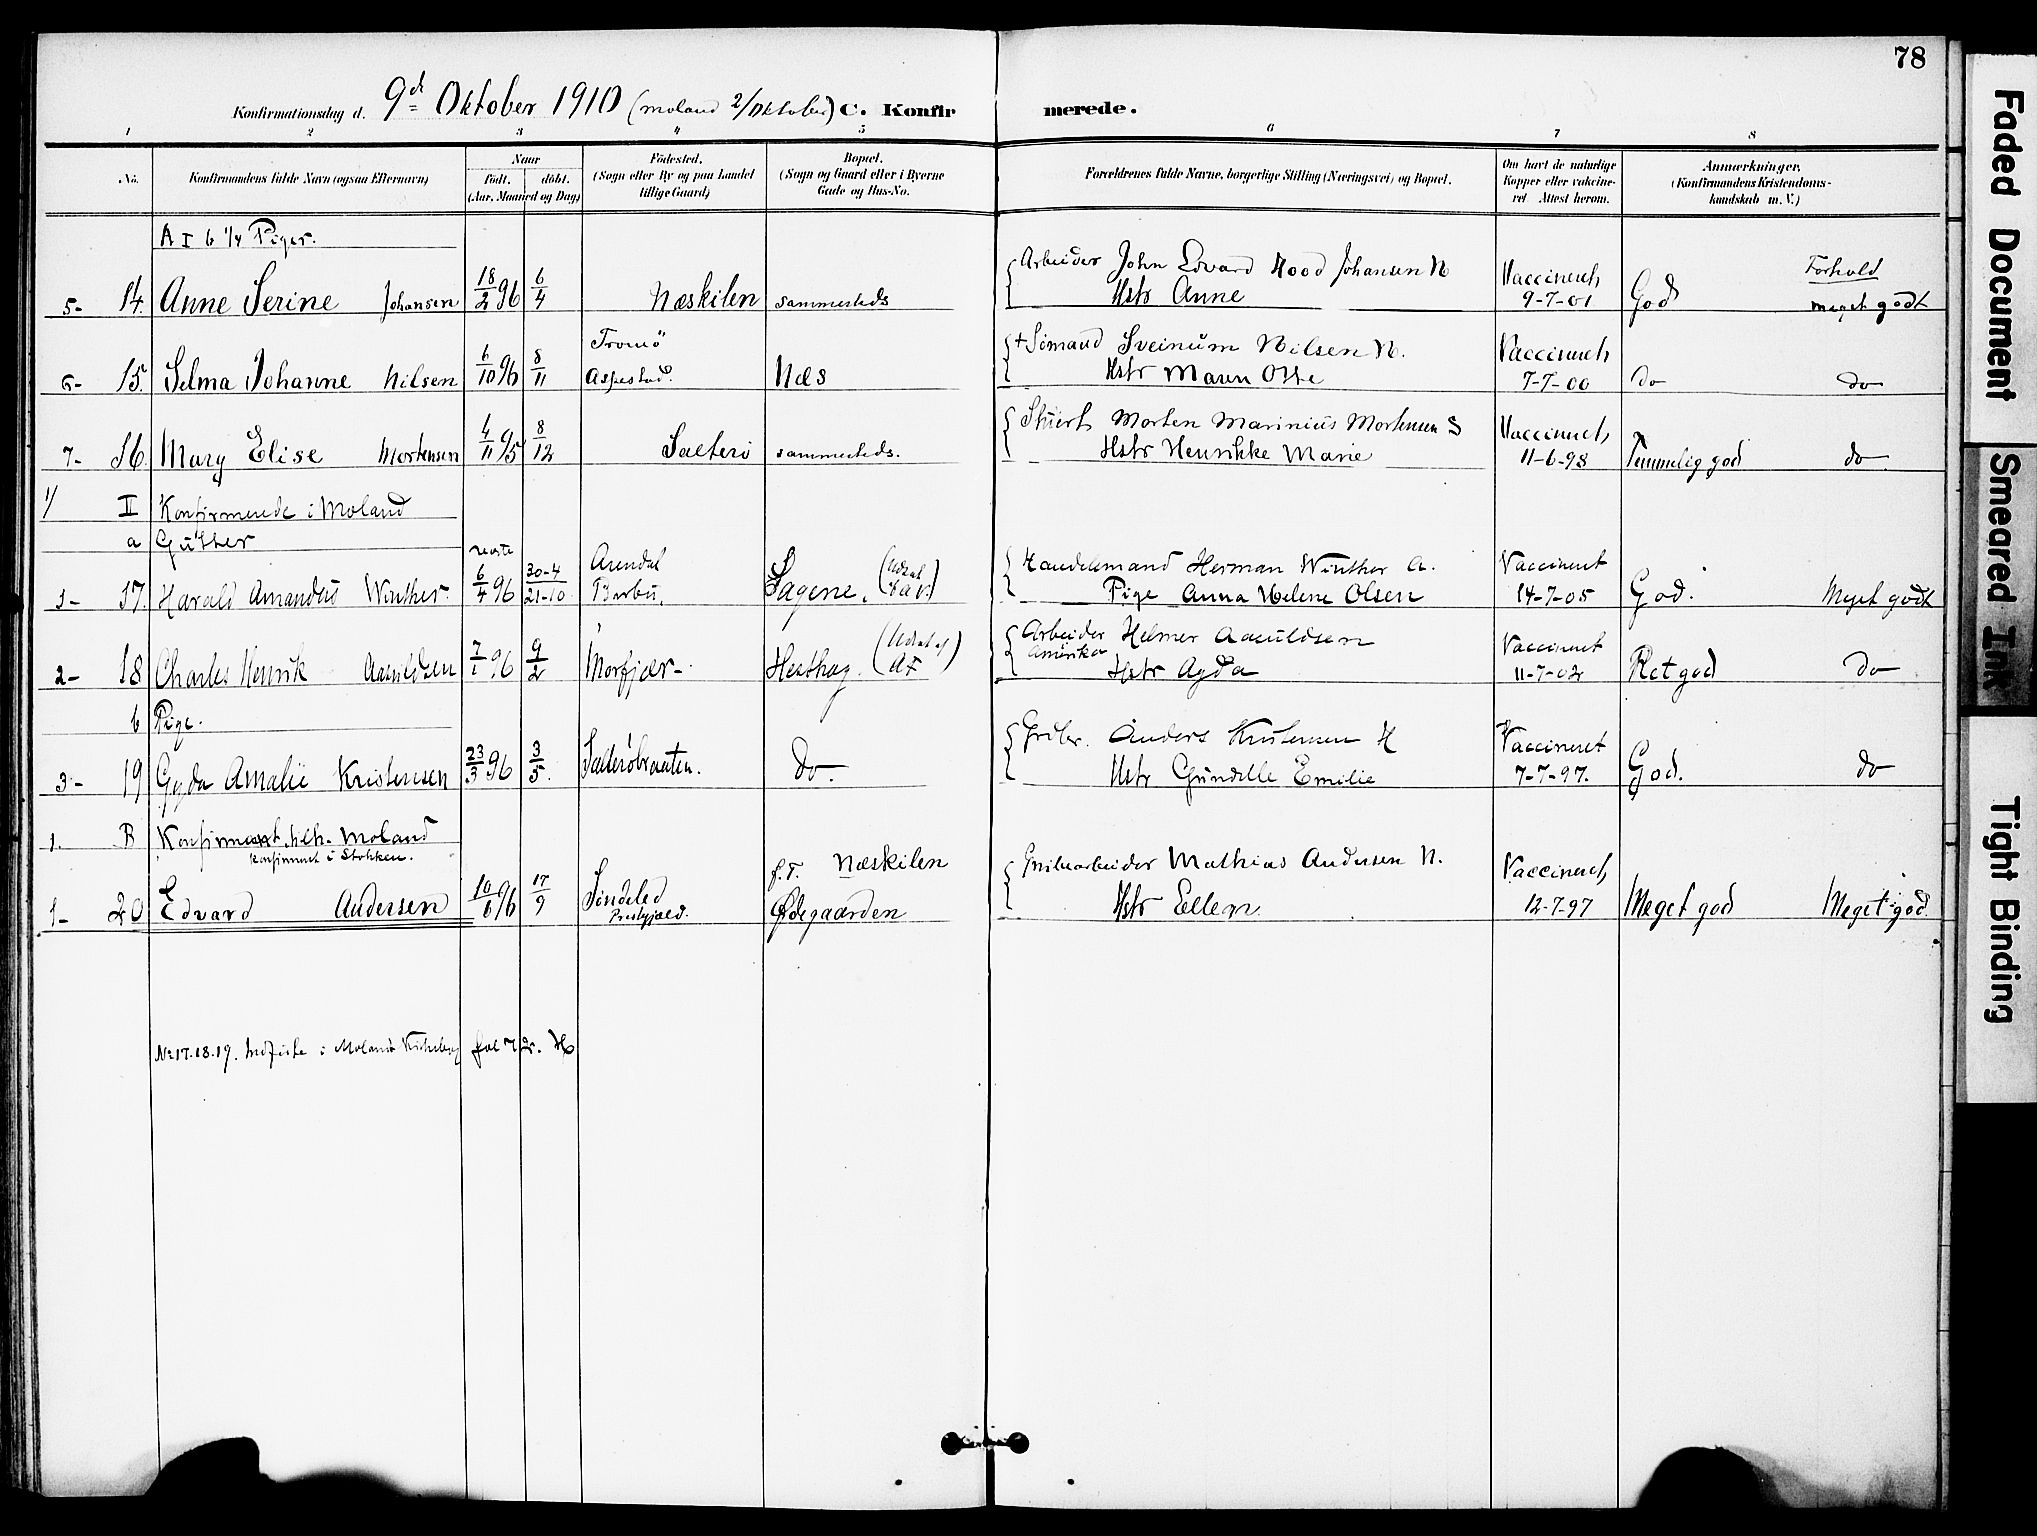 78
Konfirmationsdag d. 9d Oktober 1910 (Moland 2/Oktober) C. Konfirmerede.
1 2 3 4 5 6 7 8
No. Konfirmandens fulde Navn (ogsaa Efternavn) Naar født. døbt. (Aar, Maaned og Dag) Fødested. (Sogn eller By og paa Landet tillige Gaard) Bopæl. (Sogn og Gaard eller i Byerne Gade og Hus-No. Forældrenes fulde Navne, borgerlige Stilling (Næringsvei) og Bopæl. Om havt de naturlige Kopper eller vaccineret Attest herom. Anmærkninger. (Konfirmandens Kristendomskundskab m. V.)
A I b 1/4 Piger.
Arbeider John Edvard Hood Johansen N Forhold
5- 14. Anne Serine Johansen 18/2 96 6/4 Næskilen sammesteds Hstr Anne Vaccineret 9-7-01 God meget godt
Tromö + Sömand Sveinum Nilsen N. Vaccineret
6- 15. Selma Johanne Nilsen 6/10 96 8/11 Aspestad. Næs Hstr Maren 7-7-00 do do
Stuert Morten Marinius Mortensen S Vaccineret
7- 16. Mary Elise Mortensen 4/11 95 8/12 Salterö sammesteds. Hstr Henrikke Marie 11-6-98 Temmelig god do
1/ II Konfirmerede i Moland
a Gutter
Arendal Handelsmand Herman Winther A. Vaccineret
1- 17. Harald Amandus Winther. 6/4 96 30-4 21-10 Barbu. Sagene. Pige Anna Helene Olsen 14-7-05 God. Meget godt
Arbeider Helmer Aasuldsen Vaccineret
Amerika
2- 18 Charles Henrik Aasuldsen 7/1 96 9/2 Morfjær- Hesthag. (Udtal af AF) Hstr Agda 11-7-02 Ret god do
b Pige.
Anders Kristensen H Vaccineret
3- 19 Gyda Amalie Kristensen 23/3 96 3/5. Salteröbraaten. do. Hstr Gundelle Emilie 7-7-97. God. do
1. B Konfirmant Moland
konfirmeret i Stokken.
f. T. Næskilen Grubearbeider Mathias Andersen N. Vaccineret
1- 20 Edvard Andersen 10/6 96 17/9 Söndeled Prestgjæld. Ødegaarden Hstr Ellen 12-7-97 Meget god Meget god.
No 17.18.19. Indførte i Molands Kirkebog fol 72.
Faded Document
Smeared Ink
Tight Binding